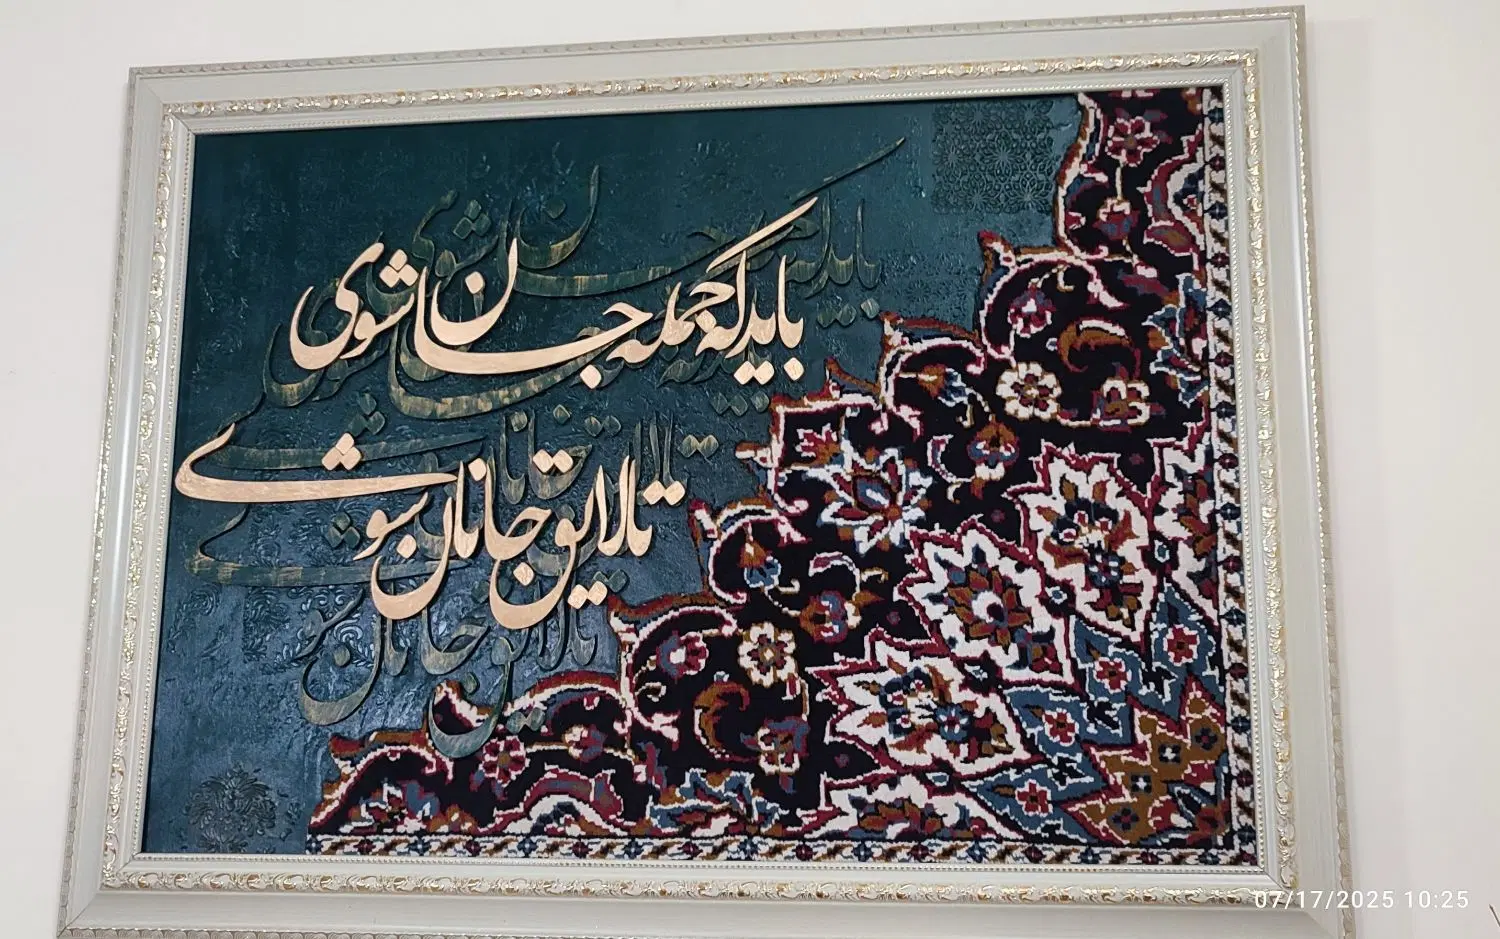 باید که جمله جان شوی
تا لایق جانان شوی
07/17/2025 10:25